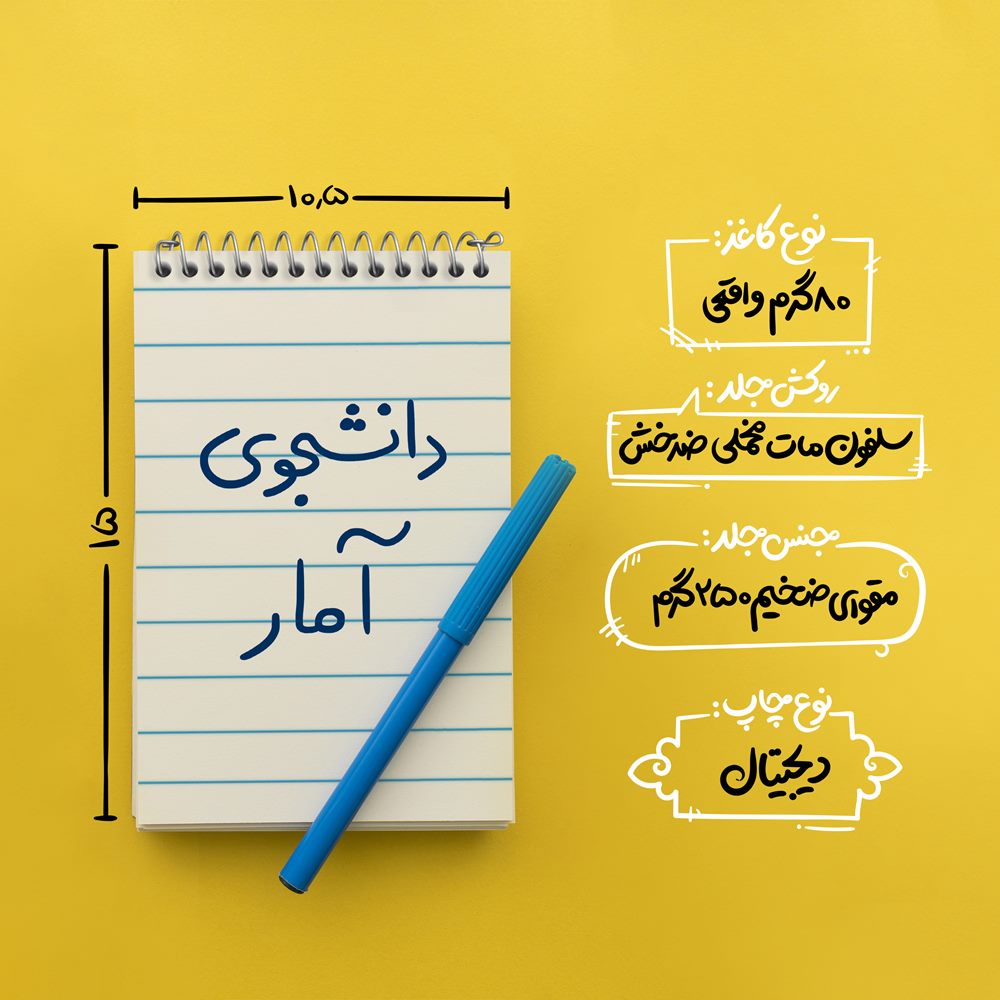 ۱۰٫۵
۱۵
دانشجوی
آمار
نوع کاغذ:
۸۰ گرم واقعی
روکش جلد:
سلفون مات مخملی ضدخش
جنس جلد:
مقوای ضخیم ۲۵۰ گرم
نوع چاپ:
دیجیتال